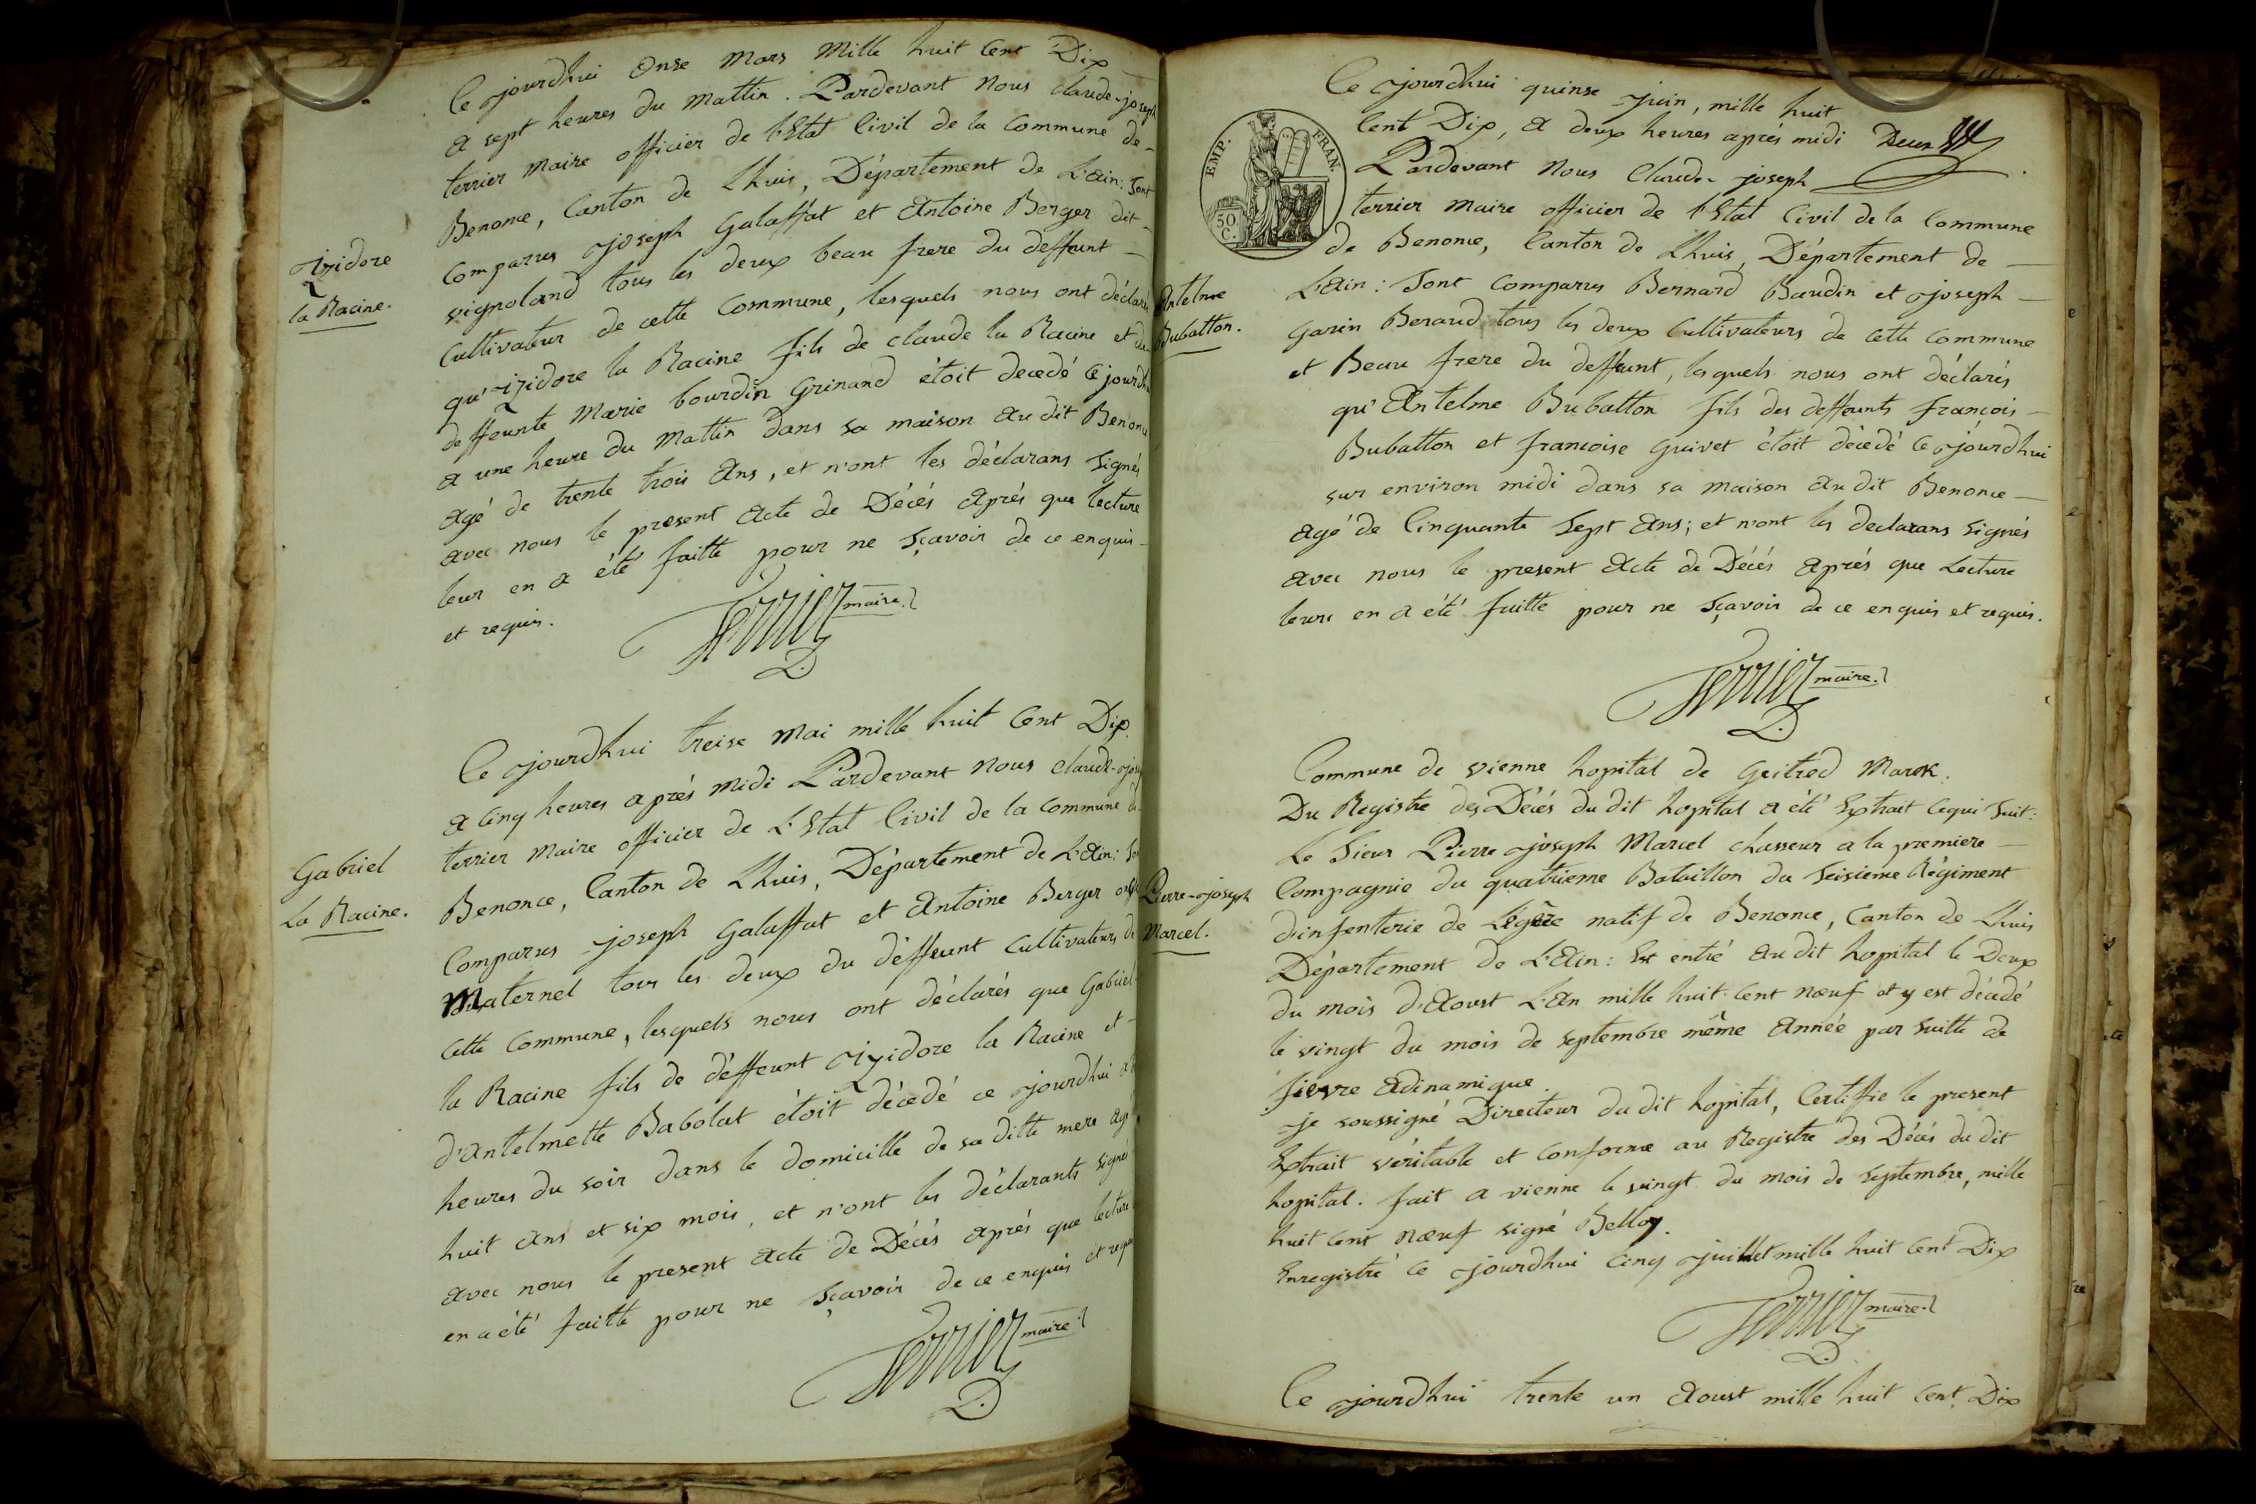 Ce jourdhui Onse Mars Mille huit Cent Dix
a sept heures du Mattin. Pardevant Nous claude-joseph
terrier Maire officier de l'Etat Civil de la Commune de
Benonce, Canton de Lhuis, Département de L'ain: sont
Comparus joseph Galaffat et Antoine Berger dit
vignoland tous les deux beau frere du deffunt
Izidore
la Racine.
Cultivateur de cette Commune, lesquels nous ont déclarés
qu'izidore la Racine fils de claude la Racine et de
deffeunte Marie bourdin Grinand étoit decedé ce jourdhui
a une heure du Mattin dans sa maison audit Benonce
agé de trente trois ans, et n'ont les déclarans signés
avec nous le present acte de Décés après que lecture
leur en a été faitte pour ne sçavoir de ce enquis
et requis.
Terrier maire.
Ce jourdhui treise Mai mille huit Cent Dix
a Cinq heures après midi Pardevant nous claude-joseph
terrier Maire officier de L'Etat Civil de la Commune de
Gabriel
La Racine.
Benonce, Canton de Lhuis, Département de L'ain:
Comparus joseph Galaffat et Antoine Berger
Maternel tous les deux du déffeunt Cultivateurs de
cette Commune, lesquels nous ont déclarés que Gabriel
la Racine fils de déffeunt izidore la Racine et
d'antelmette Babolat étoit décedé ce jourdhui a
heures du soir dans le domicille de sa ditte mere agé
huit ans et six mois, et n'ont les déclarants signés
avec nous le present acte de Décés après que lecture
en a été faitte pour ne sçavoir de ce enquis et requis
Terrier maire.
EMP. FRAN.
50 C.
Ce jourdhui quinse juin, mille huit
Cent Dix, a deux heures après midi Deux
Pardevant Nous Claude joseph
terrier maire officier de l'Etat Civil de la Commune
de Benonce, Canton de Lhuis, Département de
Antelme
Bubatton.
L'ain: Sont Comparus Bernard Baudin et joseph
Garin Beraud tous les deux Cultivateurs de cette Commune
et Beau frere du deffunt, lesquels nous ont déclarés
qu'Antelme Bubatton fils des deffeunts françois
Bubatton et francoise Guivet étoit décédé ce jourdhui
sur environ midi dans sa maison audit Benonce
agé de Cinquante Sept ans; et n'ont les declarans signés
avec nous le present acte de Décés après que Lecture
leur en a été faitte pour ne sçavoir de ce enquis et requis.
Terrier maire.
Commune de vienne hopital de Geitred Marck.
Du Registre des Décés du dit hopital a été Extrait Cequi Suit:
Le Sieur Pierre joseph Marcel chasseur a la premiere
Pierre-joseph
Marcel.
Compagnie du quatrieme Bataillon du Seisieme Régiment
d'infenterie de Légére natif de Benonce, Canton de Lhuis
Département de L'ain: Est entré audit hopital le Deux
du mois d'Aoust L'An mille huit Cent neuf et y est décedé
le vingt du mois de septembre même année par suitte de
fievre adinamique.
je soussigné Directeur du dit hopital, Certiffie le present
Extrait véritable et Conforme au Registre des Décés du dit
hopital. fait a vienne le vingt du mois de septembre, mille
huit Cent neuf signé Belloy.
Enregistré ce jourdhui Cinq juillet mille huit Cent Dix
Terrier maire.
Ce jourdhui trente un Aoust mille huit Cent Dix